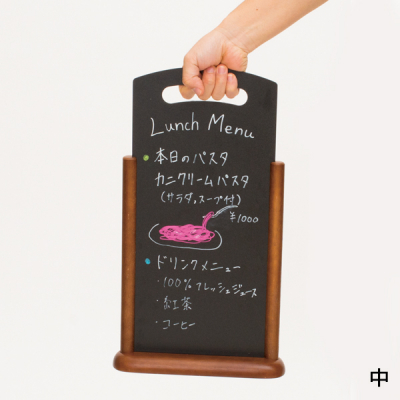 Lunch Menu
本日のパスタ
カニクリームパスタ
(サラダ,スープ付)
¥1000
ドリンクメニュー
・100%フレッシュジュース
・紅茶
・コーヒー
中